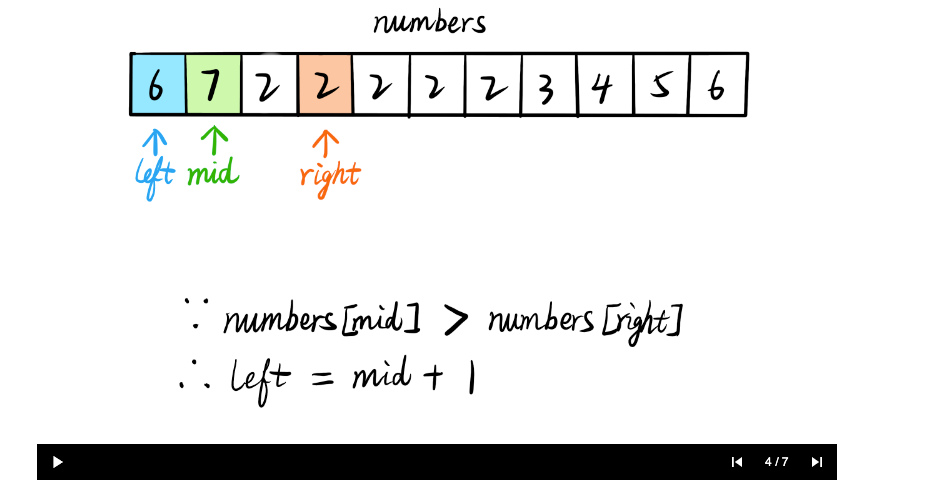 numbers
6 7 2 2 2 2 2 3 4 5 6
left mid right
∵ numbers[mid] > numbers[right]
∴ left = mid + 1
4 / 7